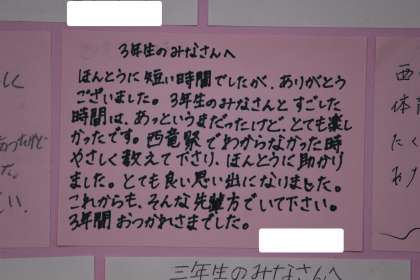 3年生のみなさんへ
ほんとうに短い時間でしたが、ありがとう
ございました。3年生のみなさんとすごした
時間は、あっというまだったけど、とても楽し
かったです。西竜祭でわからなかった時
やさしく教えて下さり、ほんとうに助かり
ました。とても良い思い出になりました。
これからも、そんな先輩方でいて下さい。
3年間おつかれさまでした。
三年生のみなさんへ
西
体育
たく